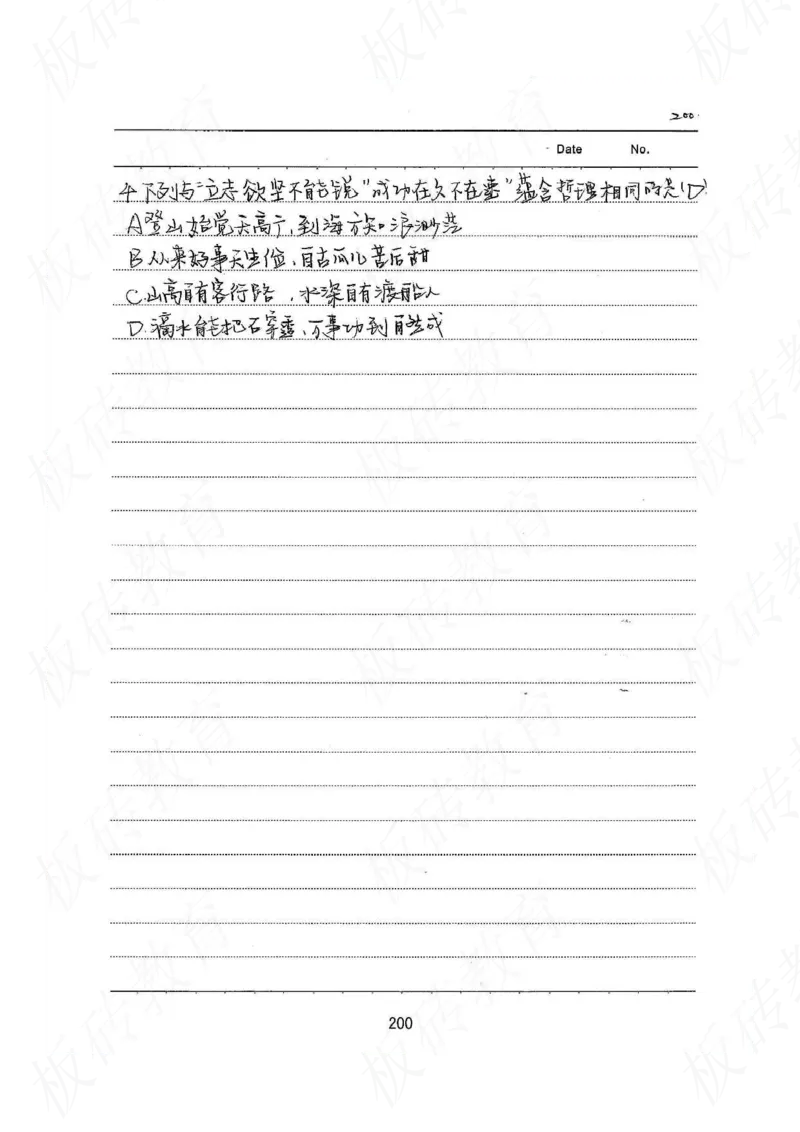 200
Date No.
4.下列与"立志欲坚不能锐"成功在久不在速"蕴含哲理相同的是(D)
A登山始觉天高广,到海方知浪渺茫
B从来好事天生俭,自古瓜儿苦后甜
C.山高自有客行路,水深自有渡船人
D.滴水能把石穿透,万事功到自然成
200
板砖教育